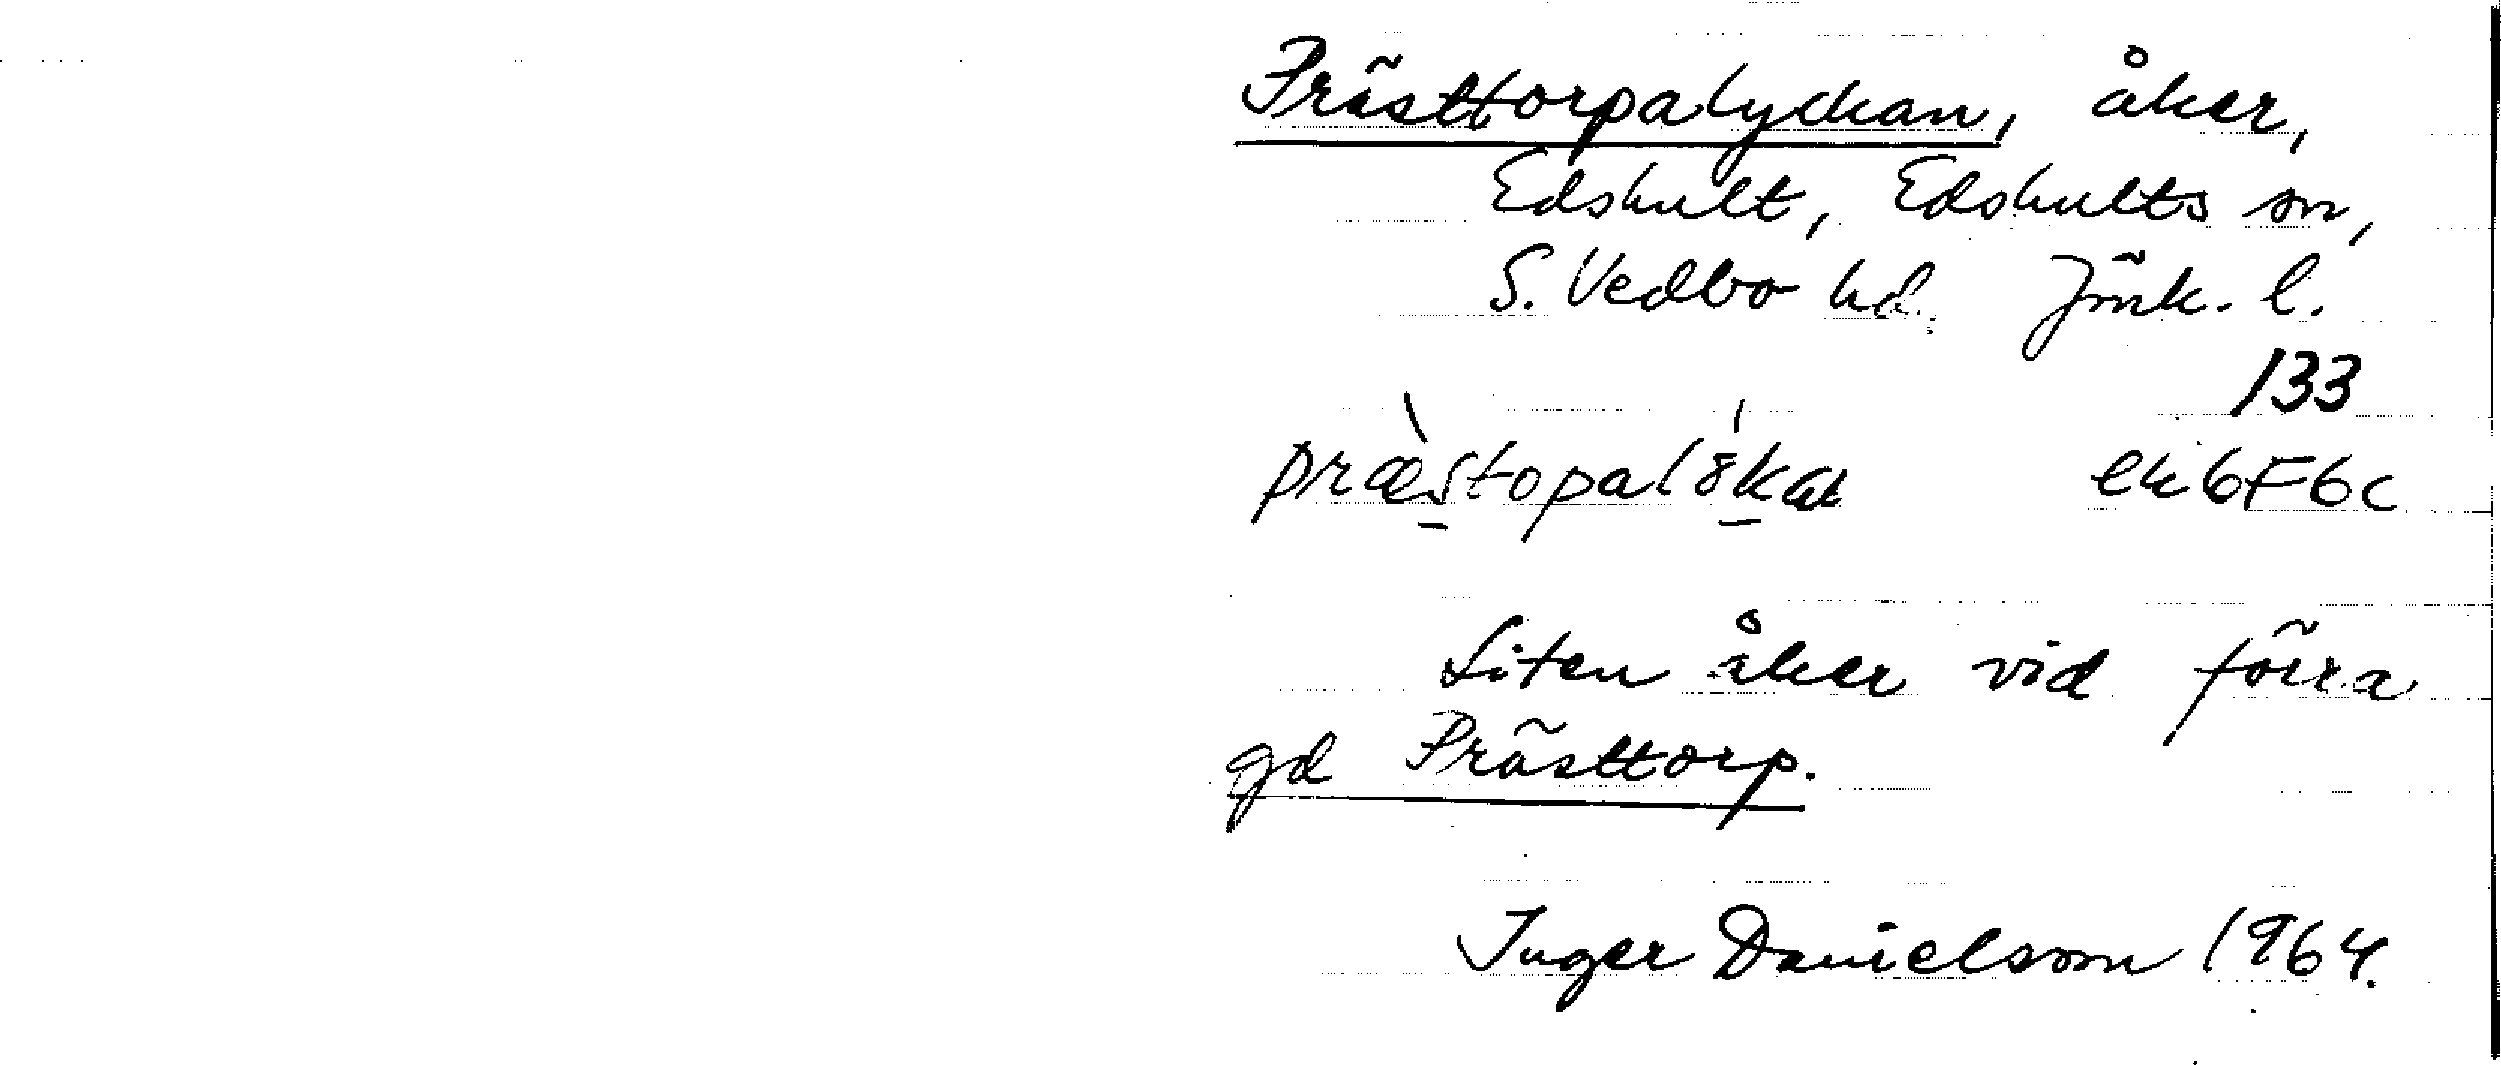 Prästtorpalyckan, åker,
Edshult, Edshults sn,
S. Vedbo hd. Jönk. l.
133
ek 6F6c
Liten åker vid förra
gd Prästtorp.
Inger Danielsson 1964.